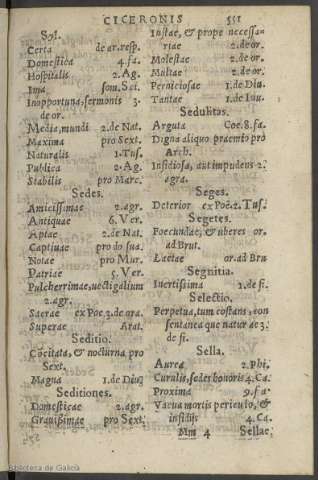 CICERONIS 551
Syl.
Certa de ar. resp.
Domestica 4. fa.
Hospitalis 2. Ag.
Ima som. Sci.
Inopportuna, sermonis 3.
de or.
Media, mundi 2. de Nat.
Maxima pro Sext.
Naturalis 1. Tus.
Publica 2. Ag.
Stabilis pro Marc.
Sedes.
Amicissimae 2. agr.
Antiquae 6. Ver.
Aptae 2. de Nat.
Captiuae pro do. sua.
Notae pro Mur.
Patriae 5. Ver.
Pulcherrimae, uectigalium
2. agr.
Sacrae ex Poë. 2. de ora.
Superae Arat.
Seditio.
Cōcitata, & nocturna pro
Sext.
Magna 1. de Diu.
Seditiones.
Domesticae 2. agr.
Grauissimae pro Sext.
Iustae, & prope necessa-
riae 2. de or.
Molestae 2. de or.
Multae 2. de or.
Perniciosae 1. de Diu.
Tantae 1. de Inu.
Sedulitas.
Arguta Coe. 8. fa.
Digna aliquo praemio pro
Arch.
Insidiosa, aut impudens 2.
agra.
Seges.
Deterior ex Poë. 2. Tus.
Segetes.
Foecundae, & uberes or.
ad Brut.
Laetae or. ad Bru.
Segnitia.
Inertissima 1. de fi.
Selectio.
Perpetua, tum constans, con
sentanea que naturae 3.
de fi.
Sella.
Aurea 2. Phi.
Curulis, sedes honoris 4. Ca.
Proxima 9. fa.
Vacua mortis periculo, &
insidiis 4. Ca.
Mm 4 Sellae.
Biblioteca de Galicia